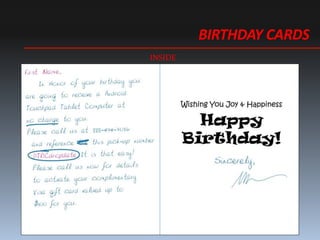 BIRTHDAY CARDS
INSIDE
First Name,
In Honor of your birthday you
are going to receive a Android
Touchpad Tablet Computer at
no charge to you.
Please call us at
and reference this pick-up number
It is that easy!
Please call us now for details
to activate your complimentary
Visa gift card valued up to
for you.
Wishing You Joy & Happiness
Happy
Birthday!
Sincerely,